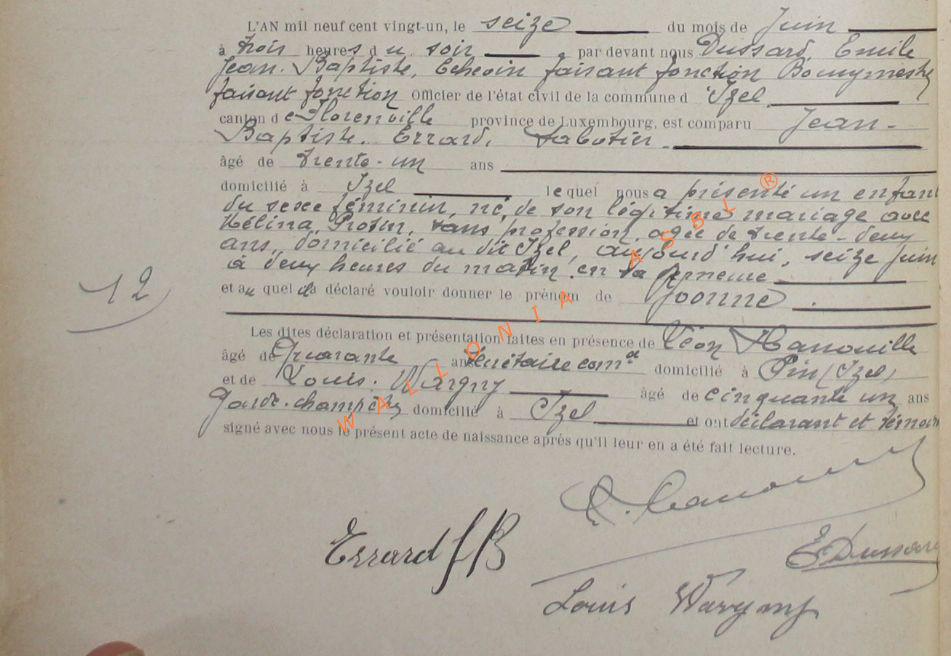 L'AN mil neuf cent vingt-un, le seize du mois de Juin
à trois heures du soir par devant nous Dussard, Emile
Jean-Baptiste, Echevin faisant fonction Bourgmestre
faisant fonction Officier de l'état civil de la commune d'Izel
canton de Florenville province de Luxembourg, est comparu Jean-
Baptiste Errard, Sabotier
âgé de trente-un ans
domicilié à Izel lequel nous a présenté un enfant
du sexe féminin, né, de son légitime mariage avec
Hélina, sans profession, agée de trente-deux
ans, domicilié au dit Izel, aujourd'hui, seize Juin
à deux heures du matin en sa demeure
et auquel il a déclaré vouloir donner le prénom de Yvonne.
12
Les dites déclaration et présentation faites en présence de Léon Hanouille
âgé de Quarante ans Secrétaire comal domicilié à Pin (Izel)
et de Louis Wargny âgé de cinquante un ans
Garde-champêtre domicilié à Izel et ont déclarant et témoin
signé avec nous le présent acte de naissance après qu'il leur en a été fait lecture.
Errard JB
E. Dussard
Louis Wargny
WALLONIA ASBL ®